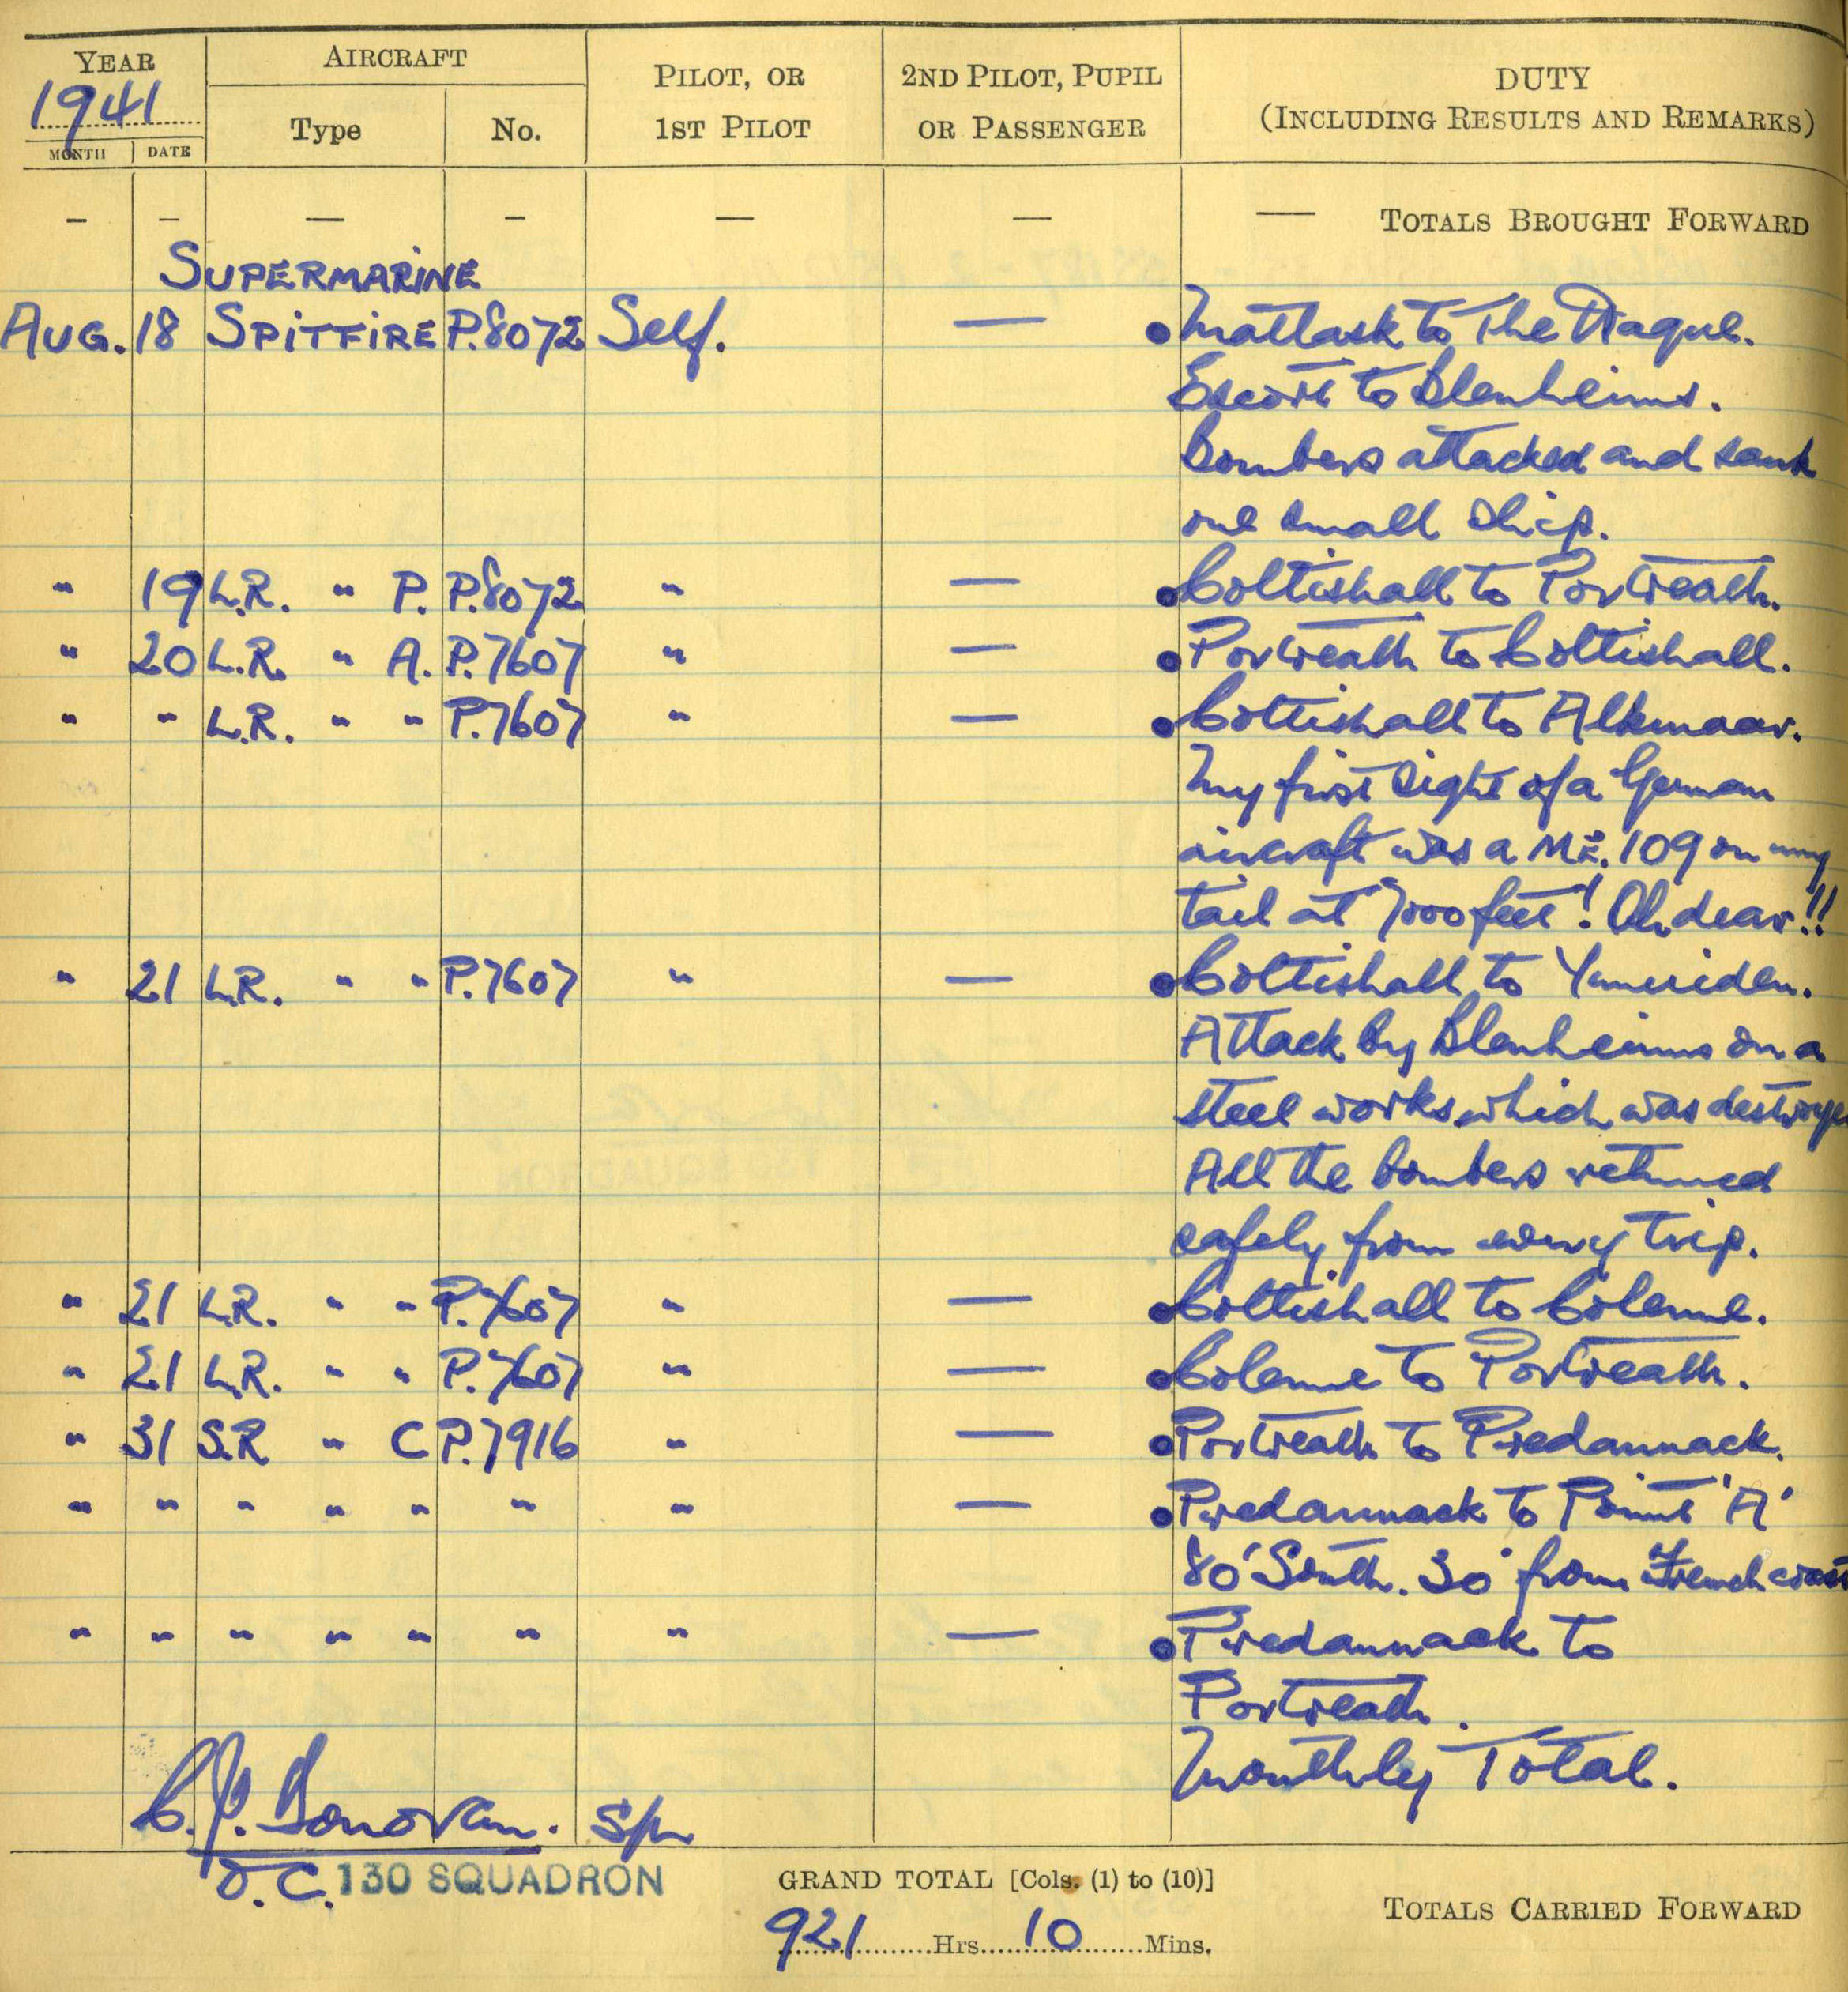 YEAR AIRCRAFT PILOT, OR 2ND PILOT, PUPIL DUTY
1941 Type No. 1ST PILOT OR PASSENGER (INCLUDING RESULTS AND REMARKS)
MONTH DATE
— — — — — — — TOTALS BROUGHT FORWARD
SUPERMARINE
AUG. 18 SPITFIRE P.8072 Self. — Matlask to The Hague.
Escort to Blenheims.
Bombers attacked and sank
one small ship.
" 19 L.R. " P. P.8072 " — Coltishall to Portreath.
" 20 L.R. " A. P.7607 " — Portreath to Coltishall.
" " L.R. " " P.7607 " — Coltishall to Alkmaar.
My first sight of a German
aircraft was a ME. 109 on my
tail at 7000 feet! Oh dear!!
" 21 L.R. " " P.7607 " — Coltishall to Ymuiden.
Attack by Blenheims on a
steel works which was destroye
All the bombers returned
safely from every trip.
" 21 L.R. " " P.7607 " — Coltishall to Colerne.
" 21 L.R. " " P.7607 " — Colerne to Portreath.
" 31 S.R " C P.7916 " — Portreath to Predannack.
" " " " " " " — Predannack to Point 'A'
80' South. 30' from French coast
" " " " " " " — Predannack to
Portreath.
Monthly Total.
C.J. Donovan. S/Ldr
O.C. 130 SQUADRON GRAND TOTAL [Cols. (1) to (10)]
TOTALS CARRIED FORWARD
921 Hrs. 10 Mins.